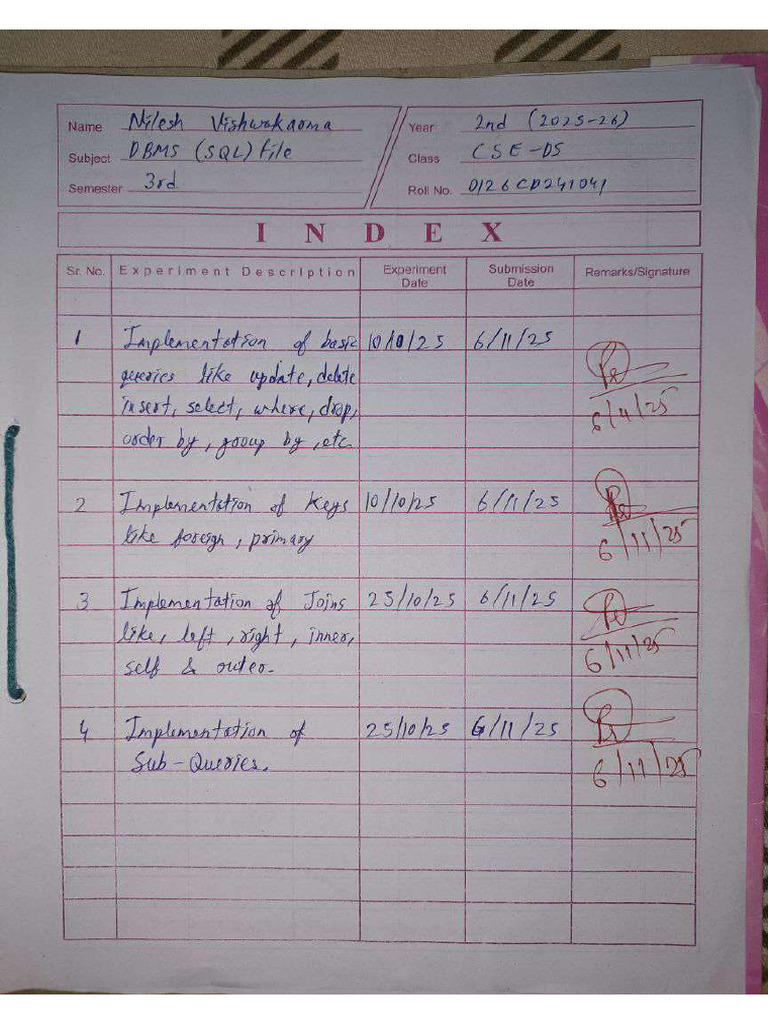 Name Nilesh Vishwakarma
Year 2nd (2025-26)
Subject DBMS (SQL) file
Class CSE-DS
Semester 3rd
Roll No. 0126CD241041
INDEX
Sr. No. Experiment Description Experiment Date Submission Date Remarks/Signature
1 Implementation of basic 10/10/25 6/11/25
queries like update, delete
insert, select, where, drop,
order by, group by, etc.
6/11/25
2 Implementation of Keys 10/10/25 6/11/25
like foreign, primary
6/11/25
3 Implementation of Joins 25/10/25 6/11/25
like, left, right, inner,
self & outer.
6/11/25
4 Implementation of 25/10/25 6/11/25
Sub-Queries.
6/11/25